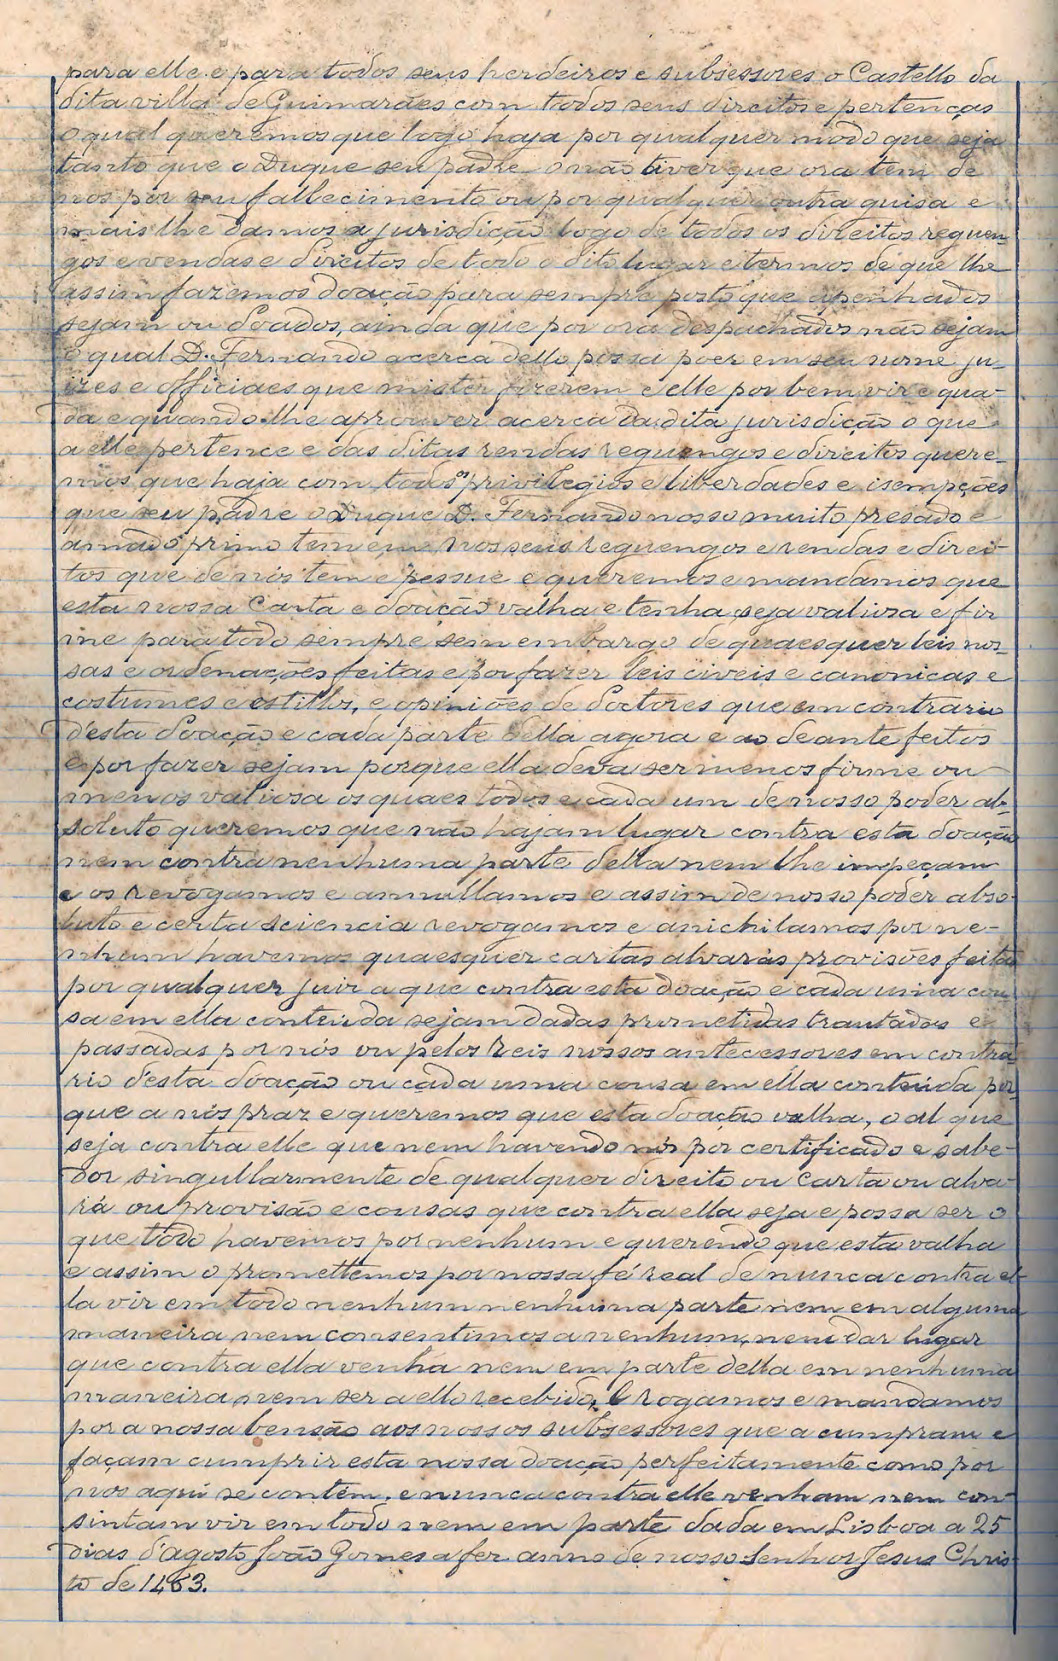 para elle e para todos seus herdeiros e subsessores o Castello da
dita villa de Guimarães com todos seus direitos e pertenças
o qual queremos que logo haja por qualquer modo que seja
tanto que o Duque seu padre o não tiver que ora tem de
nos por seu fallecimento ou por qualquer outra guisa e
mais lhe damos a jurisdição logo de todos os direitos reguen-
gos e vendas e direitos de todo o dito lugar e termos de que lhe
assim fazemos doação para sempre posto que apenhados
sejam ou doados, ainda que por ora despachados não sejam
o qual D. Fernando acerca dello possa poer em seu nome ju-
izes e officiaes que mister fizerem e elle por bem vir e qua-
da e quando lhe aprouver acerca da dita jurisdicção o que
a elle pertence e das ditas rendas reguengos e direitos quere-
mos que haja com todos os privilegios e liberdades e isempções
que seu padre o Duque D. Fernando nosso muito presado e
amado primo tem em nos seus reguengos e rendas e direi-
tos que de nós tem e pessue e queremos e mandamos que
esta nossa Carta e doação valha e tenha seja valiosa e fir
me para todo sempre sem embargo de quaesquer leis nos-
sas e ordenações feitas e por fazer leis civeis e canonicas e
costumes e estillos, e opiniões de Doctores que em contrario
d'esta doação e cada parte della agora e ao deante feitos
e por fazer sejam porque ella deva ser menos firme ou
menos valiosa os quaes todos e cada um de nosso poder ab-
soluto queremos que não hajam lugar contra esta doação
nem contra nenhuma parte della nem lhe impeçam
e os revogamos e annullamos e assim de nosso poder abso-
luto e certa sciencia revogamos e anichilamos por ne-
nhum havemos quaesquer cartas alvarás provisões feitas
por qualquer juiz a que contra esta doação e cada uma cou
sa em ella conteúda sejam dadas prometidas trautadas e
passadas por nós ou pelos Reis nossos antecessores em contra
rio d'esta doação ou cada uma cousa em ella conteúda por-
que a nós praz e queremos que esta doação valha, o al que
seja contra elle que nem havendo nós por certificado e sabe-
dor singullarmente de qualquer direito ou carta ou alva-
rá ou provisão e cousas que contra ella seja e possa ser o
que todo havemos por nenhum e querendo que esta valha
e assim o promettemos por nossa fé real de nunca contra el-
la vir em todo nenhum nenhuma parte nem em alguma
maneira nem consentimos a nenhum, nem dar lugar
que contra ella venha nem em parte della em nenhuma
maneira nem ser a ello recebido. E rogamos e mandamos
por a nossa bensão aos nossos subsessores que a cumpram e
façam cumprir esta nossa doação perfeitamente como por
nos aqui se contém, e nunca contra elle venham nem con-
sintam vir em todo nem em parte dada em Lisboa a 25
dias d'agosto João Gomes a fez anno de nosso Senhor Jesus Chris-
to de 1463.